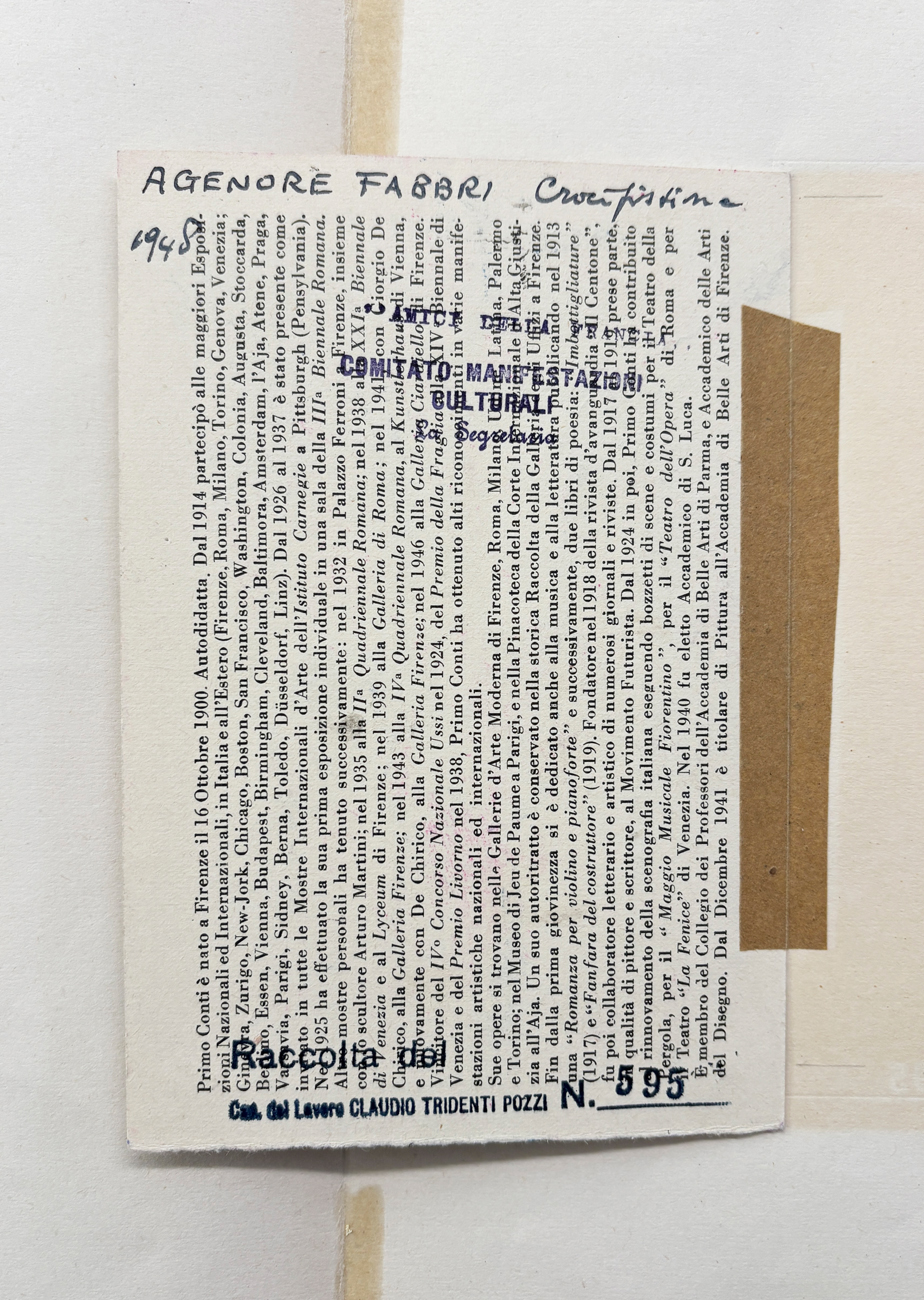 AGENORE FABBRI Crocifissione
1948
Primo Conti è nato a Firenze il 16 Ottobre 1900. Autodidatta, Dal 1914 partecipò alle maggiori Esposi-
zioni Nazionali ed Internazionali, in Italia e all'Estero (Firenze, Roma, Milano, Torino, Genova, Venezia;
Ginevra, Zurigo, New-Jork, Chicago, Boston, San Francisco, Washington, Colonia, Augusta, Stoccarda,
Berlino, Essen, Vienna, Budapest, Birmingham, Cleveland, Baltimora, Amsterdam, l'Aja, Atene, Praga,
Varsavia, Parigi, Sidney, Berna, Toledo, Düsseldorf, Linz). Dal 1926 al 1937 è stato presente come
invitato in tutte le Mostre Internazionali d'Arte dell'Istituto Carnegie a Pittsburgh (Pensylvania).
Nel 1925 ha effettuato la sua prima esposizione individuale in una sala della IIIª Biennale Romana.
Altre mostre personali ha tenuto successivamente: nel 1932 in Palazzo Ferroni a Firenze, insieme
con lo scultore Arturo Martini; nel 1935 alla IIª Quadriennale Romana; nel 1938 alla XXIª Biennale
di Venezia e al Lyceum di Firenze; nel 1939 alla Galleria di Roma; nel 1941 con Giorgio De
Chirico, alla Galleria Firenze; nel 1943 alla IVª Quadriennale Romana, al Kunsthalhaus di Vienna,
e nuovamente con De Chirico, alla Galleria Firenze; nel 1946 alla Galleria Ciardello di Firenze.
Vincitore del IVº Concorso Nazionale Ussi nel 1924, del Premio della Fraglia alla XIV Biennale di
Venezia e del Premio Livorno nel 1938, Primo Conti ha ottenuto alti riconoscimenti in varie manife-
stazioni artistiche nazionali ed internazionali.
Sue opere si trovano nelle Gallerie d'Arte Moderna di Firenze, Roma, Milano, Udine, Latina, Palermo
e Torino; nel Museo di Jeu de Paume a Parigi, e nella Pinacoteca della Corte Internazionale Alta Giusti-
zia all'Aja. Un suo autoritratto è conservato nella storica Raccolta della Galleria degli Uffizi a Firenze.
Fin dalla prima giovinezza si è dedicato anche alla musica e alla letteratura pubblicando nel 1913
una "Romanza per violino e pianoforte" e successivamente, due libri di poesia: "Imbottigliature"
(1917) e "Fanfara del costruttore" (1919). Fondatore nel 1918 della rivista d'avanguardia "Il Centone",
fu poi collaboratore letterario e artistico di numerosi giornali e riviste. Dal 1917 al 1919 prese parte,
in qualità di pittore e scrittore, al Movimento Futurista. Dal 1924 in poi, Primo Conti ha contribuito
al rinnovamento della scenografia italiana eseguendo bozzetti di scene e costumi per il Teatro della
Pergola, per il "Maggio Musicale Fiorentino", per il "Teatro dell'Opera" di Roma e per
il Teatro "La Fenice" di Venezia. Nel 1940 fu eletto Accademico di S. Luca.
È membro del Collegio dei Professori dell'Accademia di Belle Arti di Parma, e Accademico delle Arti
del Disegno. Dal Dicembre 1941 è titolare di Pittura all'Accademia di Belle Arti di Firenze.
"AMICI DELLA
COMITATO MANIFESTAZIONI
CULTURALI
la Segreteria
Raccolta del
Cav. del Lavoro CLAUDIO TRIDENTI POZZI N. 595